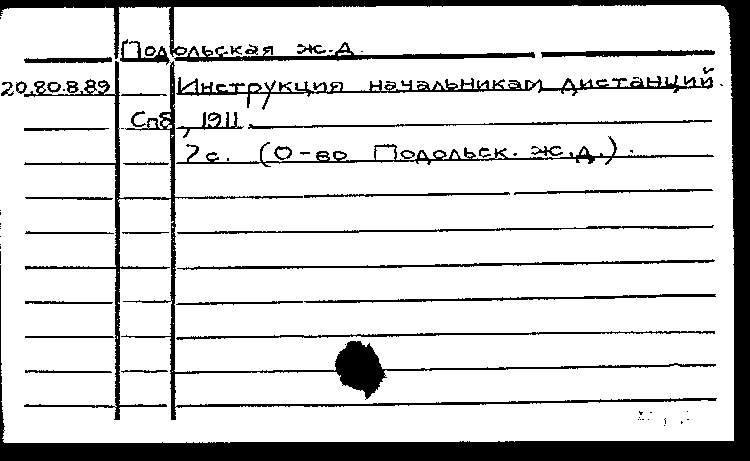 Подольская ж.д.
20.80.8.89 Инструкция начальникам дистанций.
Спб, 1911.
7 с. (О-во Подольск. ж.д.).